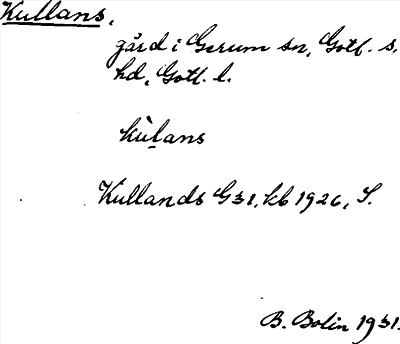 Kullans.
gård i Gerum sn, Gotl. s.
hd, Gotl. l.
kùlans
Kullands G31, kb 1926, S.
B. Bolin 1931.